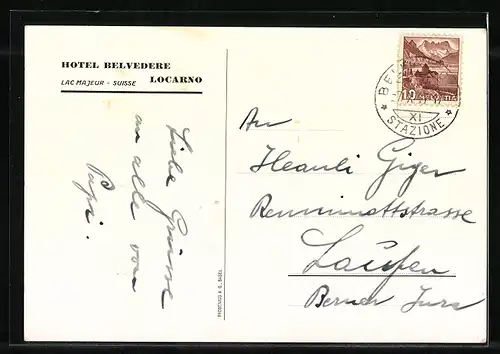 HOTEL BELVEDERE
LAC MAJEUR - SUISSE LOCARNO
Liebe Grüsse
an alle von
Papi.
10 HELVETIA
XI
STAZIONE
An
Heauli Giger
Rennimattstrasse
Laufen
Berner Jura